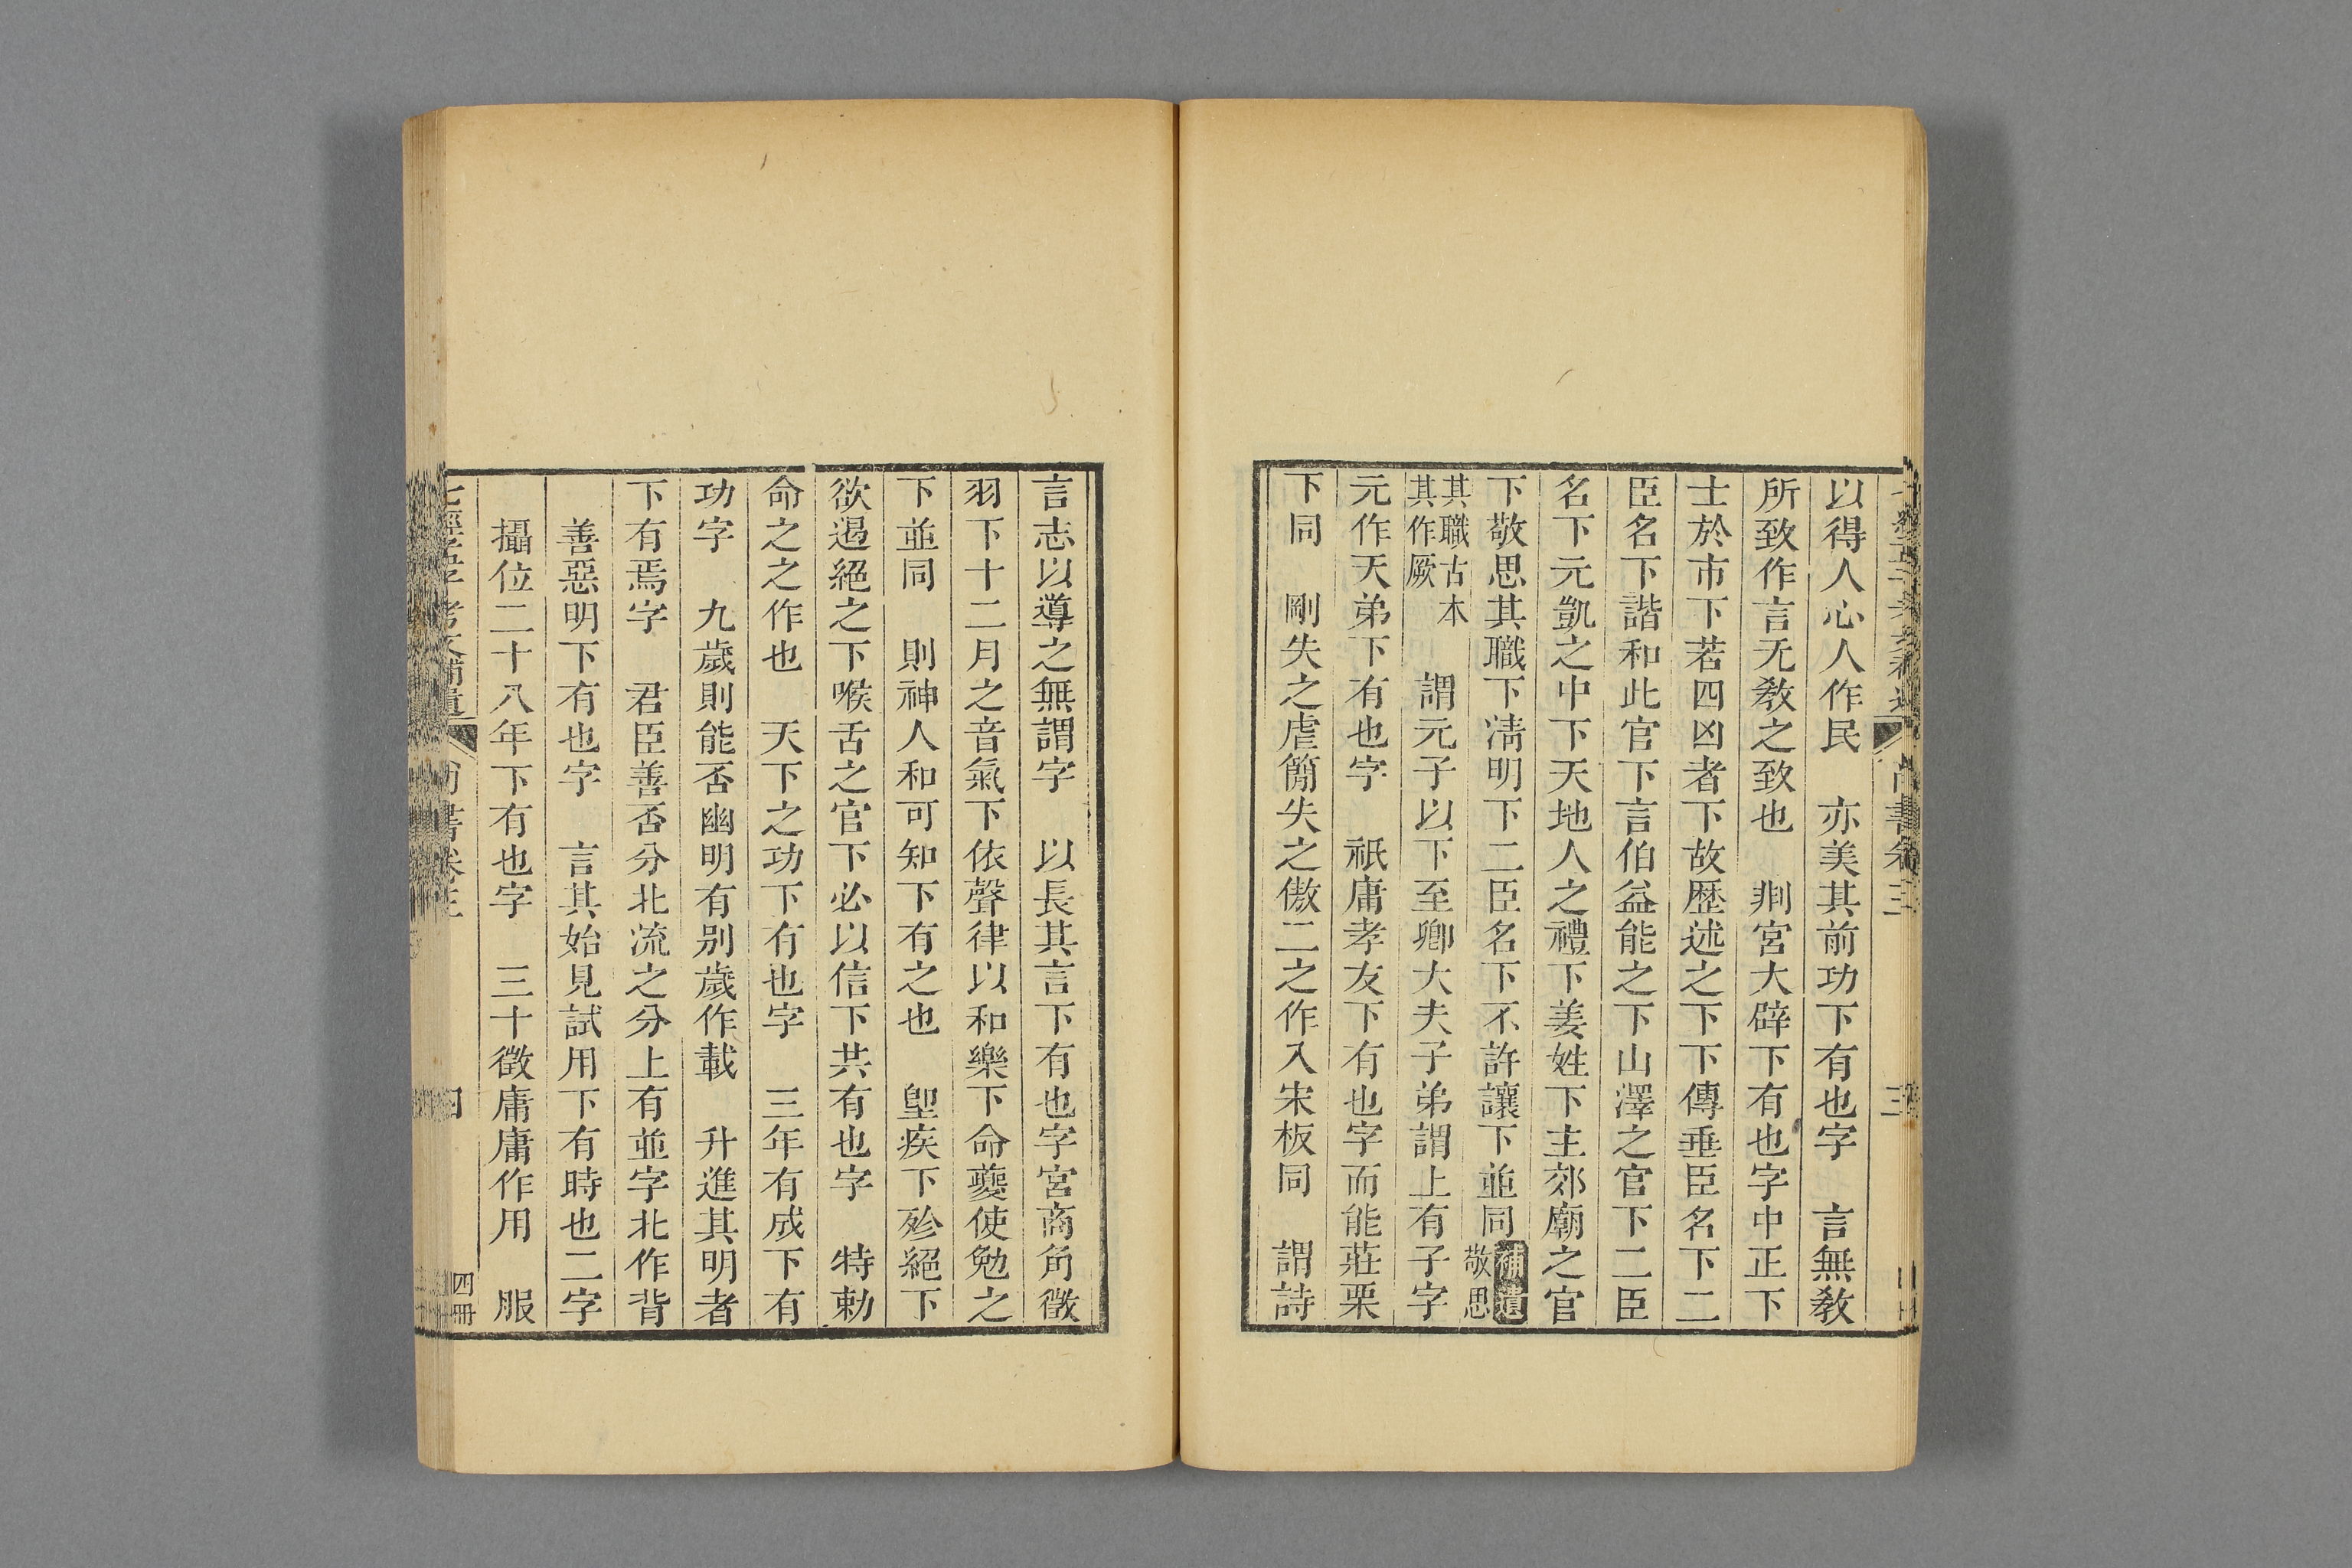 七經孟子考文補遺 尚書卷三 三
以得人心人作民 亦美其前功下有也字 言無教
所致作言无教之致也 剕宮大辟下有也字中正下
士於市下若四凶者下故歷述之下下傳垂臣名下二
臣名下諧和此官下言伯益能之下山澤之官下二臣
名下元凱之中下天地人之禮下姜姓下主郊廟之官
下敬思其職下淸明下二臣名下不許讓下並同補遺敬思
其職古本其作厥 謂元子以下至卿大夫子弟謂上有子字
元作天弟下有也字 祇庸孝友下有也字而能莊栗
下同 剛失之虐簡失之傲二之作入宋板同 謂詩
言志以導之無謂字 以長其言下有也字宮商角徵
羽下十二月之音氣下依聲律以和樂下命夔使勉之
下並同 則神人和可知下有之也 堲疾下殄絕下
欲遏絕之下喉舌之官下必以信下共有也字 特勅
命之之作也 天下之功下有也字 三年有成下有
功字 九歲則能否幽明有别歲作載 升進其明者
下有焉字 君臣善否分北流之分上有並字北作背
善惡明下有也字 言其始見試用下有時也二字
攝位二十八年下有也字 三十徵庸庸作用 服
七經孟子考文補遺 尚書卷三 四 四冊